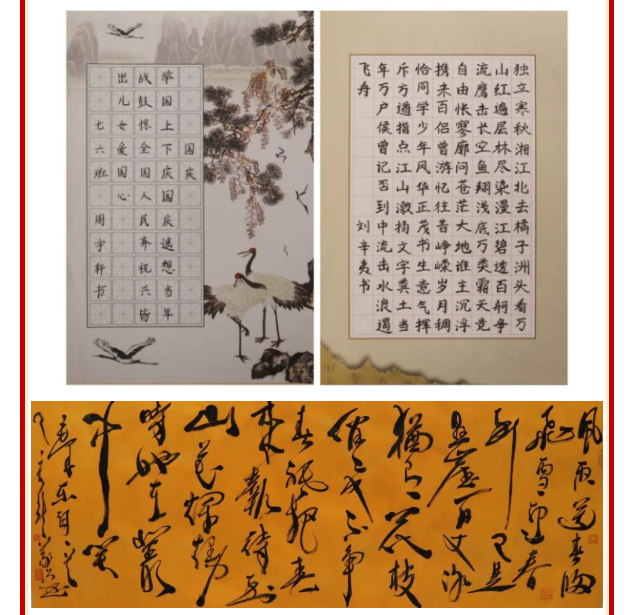 国庆
举国上下庆国庆遥想当年
战鼓惊全国人民齐祝兴皆
出儿女爱国心
七六班 周宇轩书
独立寒秋湘江北去橘子洲头看万
山红遍层林尽染漫江碧透百舸争
流鹰击长空鱼翔浅底万类霜天竞
自由怅寥廓问苍茫大地谁主沉浮
携来百侣曾游忆往昔峥嵘岁月稠
恰同学少年风华正茂书生意气挥
斥方遒指点江山激扬文字粪土当
年万户侯曾记否到中流击水浪遏
飞舟 刘辛夷书
风雨送春归
飞雪迎春
到已是
悬崖百丈冰
犹有花枝
俏俏不争
春只把春
来报待到
山花烂熳
时她在丛
中笑